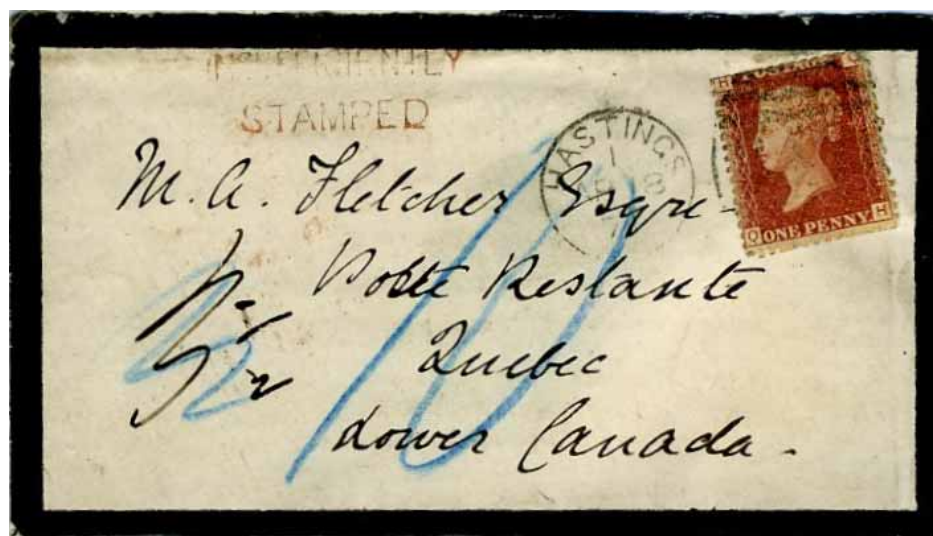 INSUFFICIENTLY
STAMPED
HASTINGS
H Q
Q ONE PENNY H
M. A. Fletcher Esqre-
Poste Restante
Quebec
Lower Canada -
10